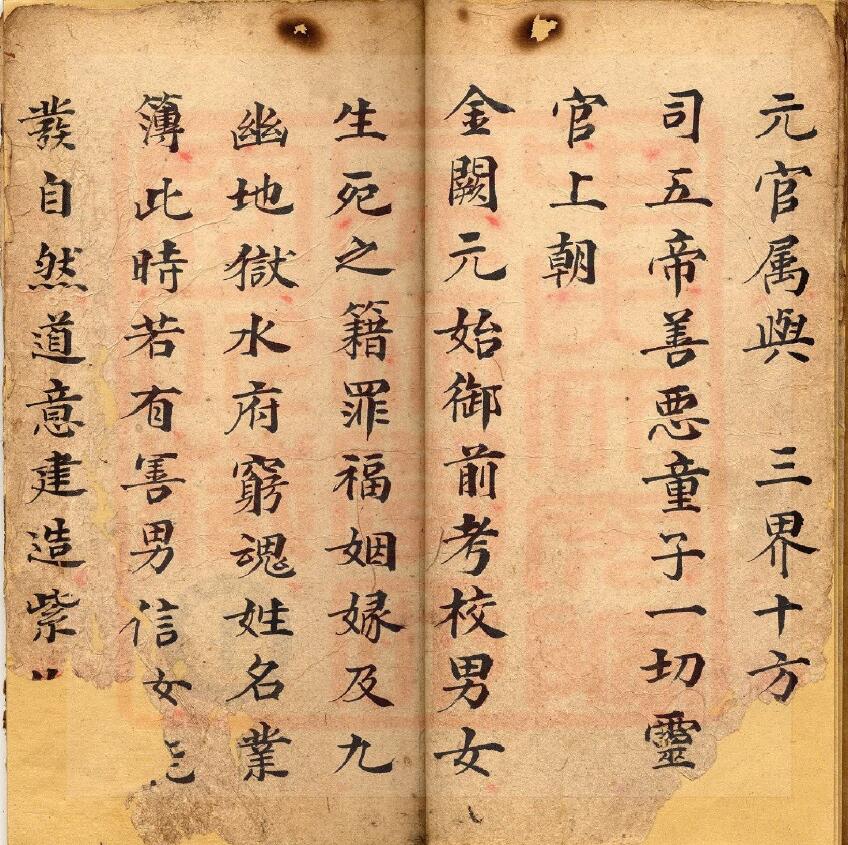 元官属與　三界十方
司五帝善悪童子一切靈
官上朝
金闕元始御前考校男女
生死之籍罪福姻縁及九
幽地獄水府窮魂姓名業
簿此時若有善男信女能
發自然道意建造紫